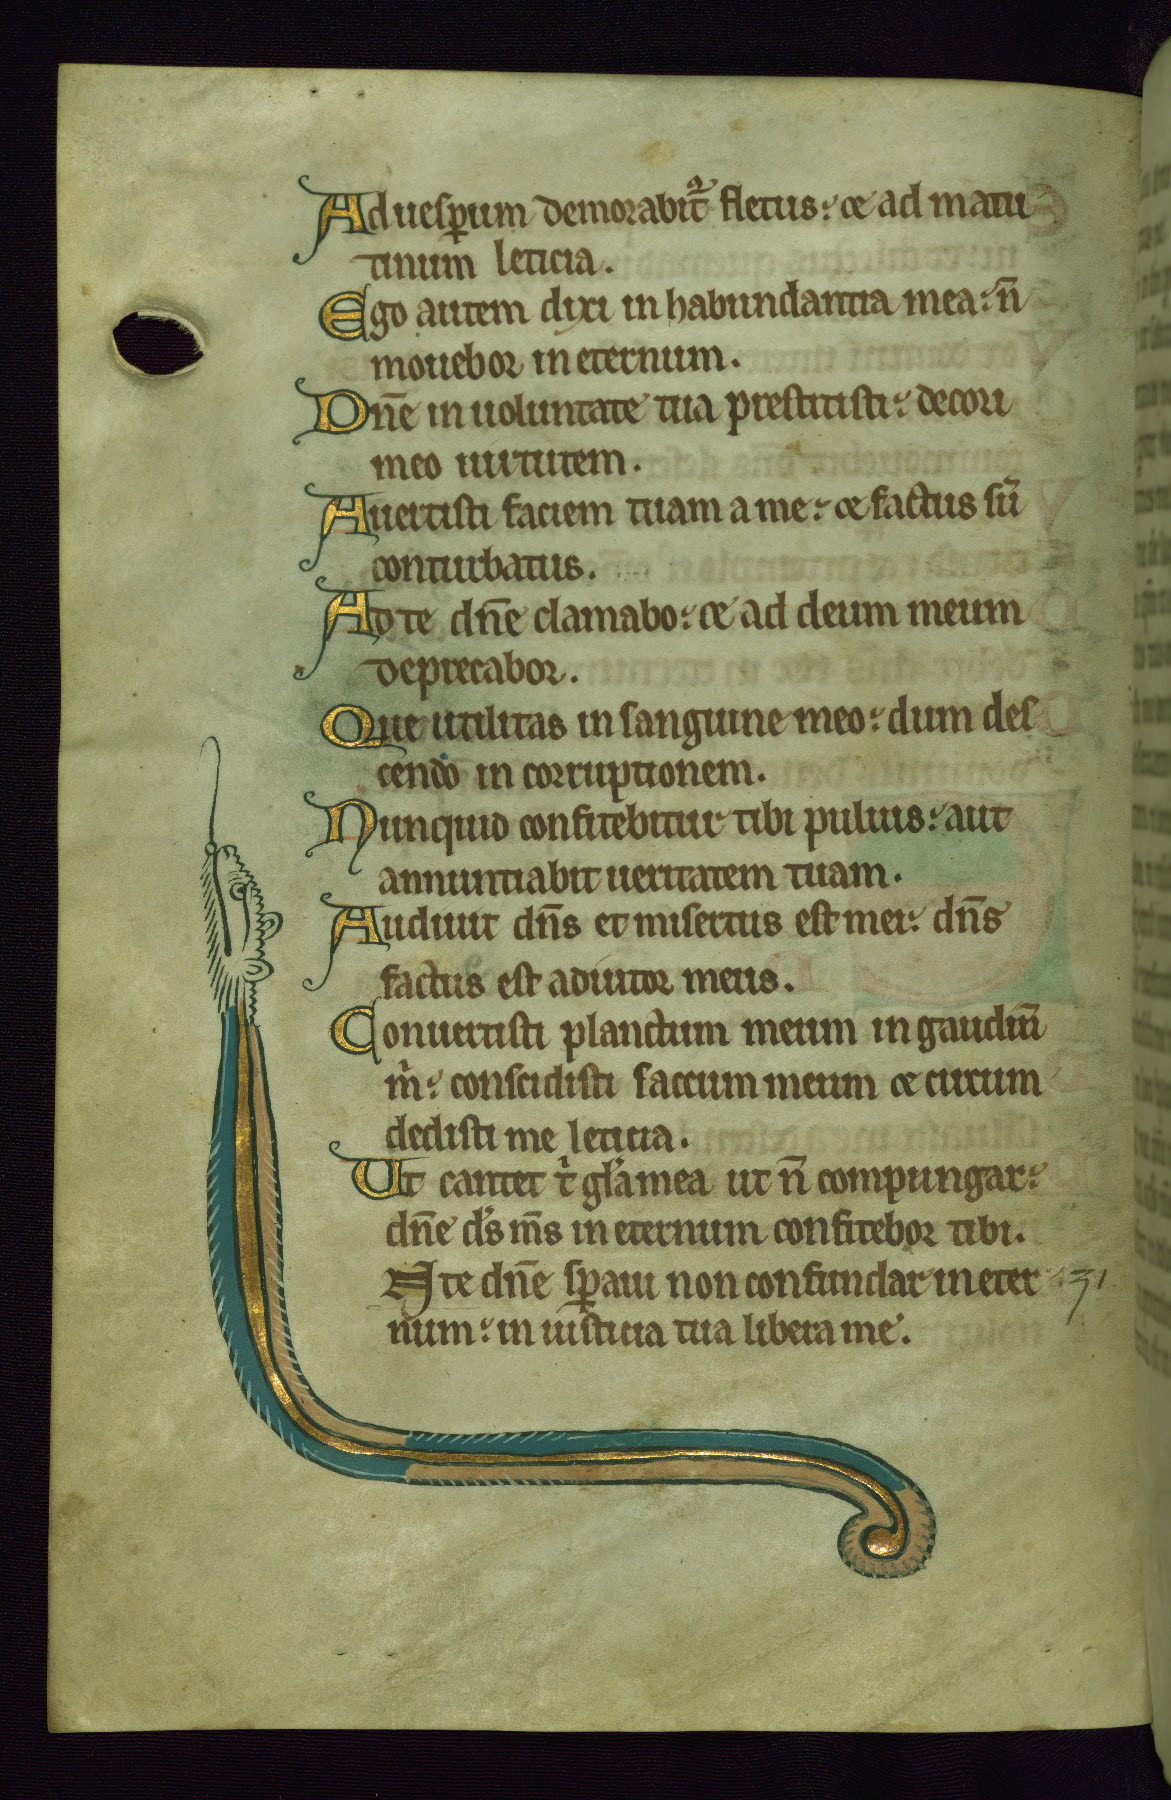 Ad uesꝑum demorabit᷑ fletus: ⁊ ad matu
tinum leticia.
Ego autem dixi in habundantia mea: n̄
mouebor in eternum.
Dn̄e in uoluntate tua prestitisti: decori
meo uirtutem.
Auertisti faciem tuam a me: ⁊ factus sū
conturbatus.
Ad te dn̄e clamabo: ⁊ ad deum meum
deprecabor.
Que utilitas in sanguine meo: dum des
cendo in corruptionem.
Nunquid confitebitur tibi puluis: aut
annuntiabit ueritatem tuam.
Audiuit dn̄s et misertus est mei: dn̄s
factus est adiutor meus.
Conuertisti planctum meum in gaudiū
m̍: conscidisti saccum meum ⁊ circum
dedisti me leticia.
Ut cantet t̍ gl̍a mea ut n̄ compungar:
dn̄e d̍s m̄s in eternum confitebor tibi.
In te dn̄e sꝑaui non confundar in eter
num: in iusticia tua libera me.
31